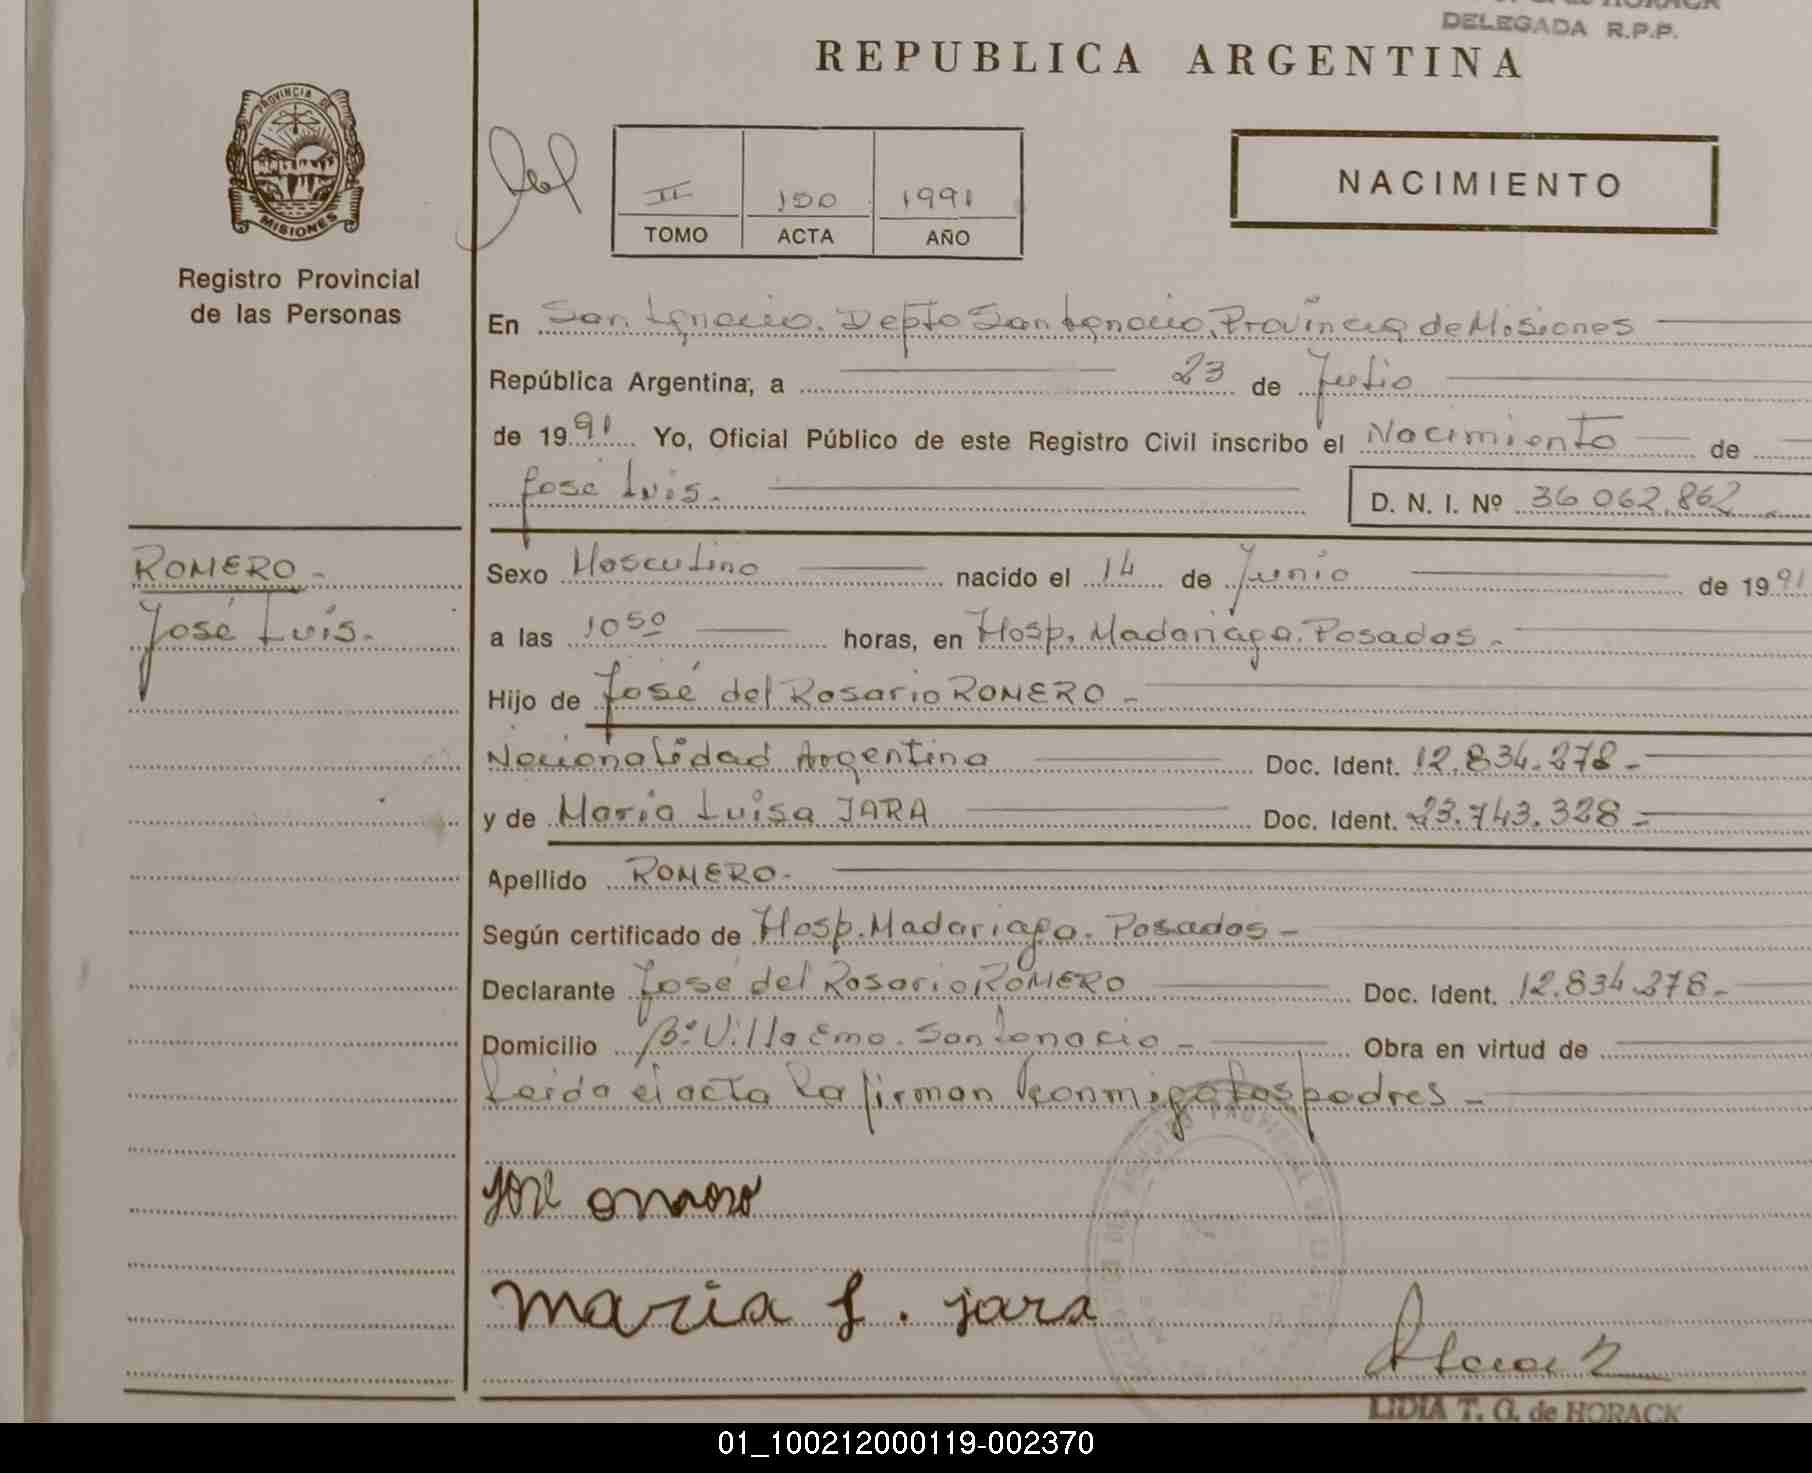 DELEGADA R.P.P.
REPUBLICA ARGENTINA
PROVINCIA DE
MISIONES
Registro Provincial
de las Personas
II 150 1991
TOMO ACTA AÑO
NACIMIENTO
En San Ignacio. Depto San Ignacio, Provincia de Misiones
República Argentina, a 23 de Julio
de 1991 Yo, Oficial Público de este Registro Civil inscribo el Nacimiento de
José Luis.
D. N. I. Nº 36.062.862
ROMERO -
José Luis.
Sexo Masculino nacido el 14 de Junio de 1991
a las 10 50 horas, en Hosp. Madariaga. Posadas -
Hijo de José del Rosario ROMERO -
Nacionalidad Argentina Doc. Ident. 12.834.278 -
y de María Luisa JARA Doc. Ident. 23.743.328 -
Apellido ROMERO -
Según certificado de Hosp. Madariaga. Posadas -
Declarante José del Rosario ROMERO Doc. Ident. 12.834.278 -
Domicilio Bº Villa Emo. San Ignacio - Obra en virtud de
Leida el acta la firman conmigo los padres -
José
maria L. jara
LIDIA T. G. de HORACK
01_100212000119-002370